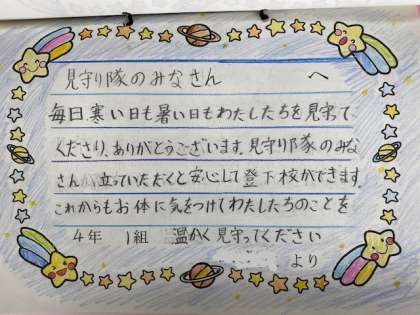 見守り隊のみなさん へ
毎日、寒い日も暑い日もわたしたちを見守って
くださり、ありがとうございます。見守り隊のみな
さんが立っていただくと安心して登下校ができます。
これからもお体に気をつけてわたしたちのことを
4年 1組 温かく見守ってください
より